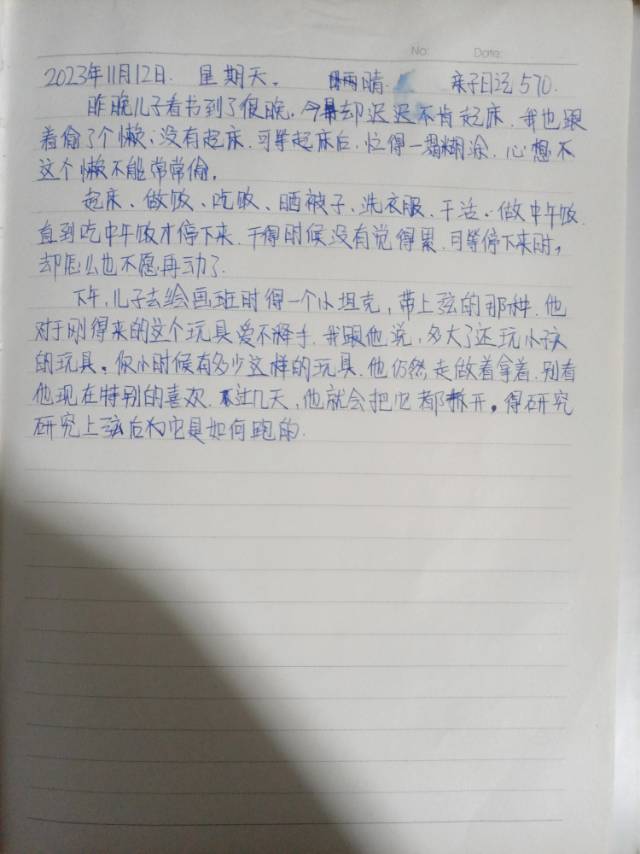 No: Date:
2023年11月12日. 星期天. 晴 亲子日记570.
昨晚儿子看书到了很晚,今早却迟迟不肯起床.我也跟
着偷了个懒,没有起床.可等起床后,忙得一塌糊涂,心想不
这个懒不能常常偷.
起床、做饭、吃饭、晒被子、洗衣服、干活、做中午饭
直到吃中午饭才停下来.干得时候没有觉得累.可等停下来时,
却怎么也不愿再动了.
下午,儿子去绘画班时得一个小坦克,带上弦的那种.他
对于刚得来的这个玩具爱不释手.我跟他说,多大了还玩小孩
的玩具.你小时候有多少这样的玩具.他仍然走做着拿着.别看
他现在特别的喜欢.不过几天,他就会把它都拆开.得研究
研究上弦后的它是如何跑的.